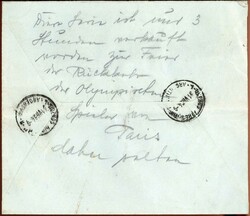 Diese Serie ist nur 3
Stunden verkauft
worden zur Feier
der Rückkehr
der Olympischen
Spieler von
Paris
daher selten